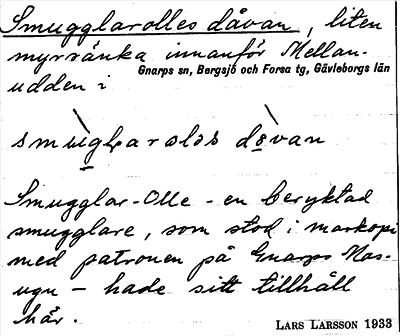 Smugglarolles dåvan, liten
myrvänka innanför Mellan-
Gnarps sn, Bergsjö och Forsa tg, Gävleborgs län
udden i
Smugglar-Olle - en beryktad
smugglare, som stod i maskopi
med patronen på Gnarps Mas-
ugn - hade sitt tillhåll
här.
LARS LARSSON 1933